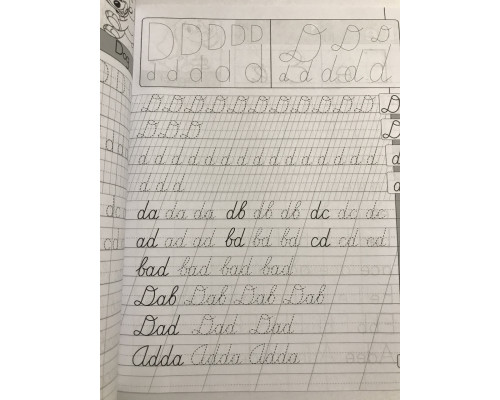 D D D D D D D D
d d d d d d d d d d
D D D D D D D D D D D
D D D
d d d d d d d d d d d d d d
d d d
da da da db db db dc dc dc
ad ad ad bd bd bd cd cd cd
bad bad bad bad
Dab Dab Dab Dab
Dad Dad Dad
Adda Adda Adda